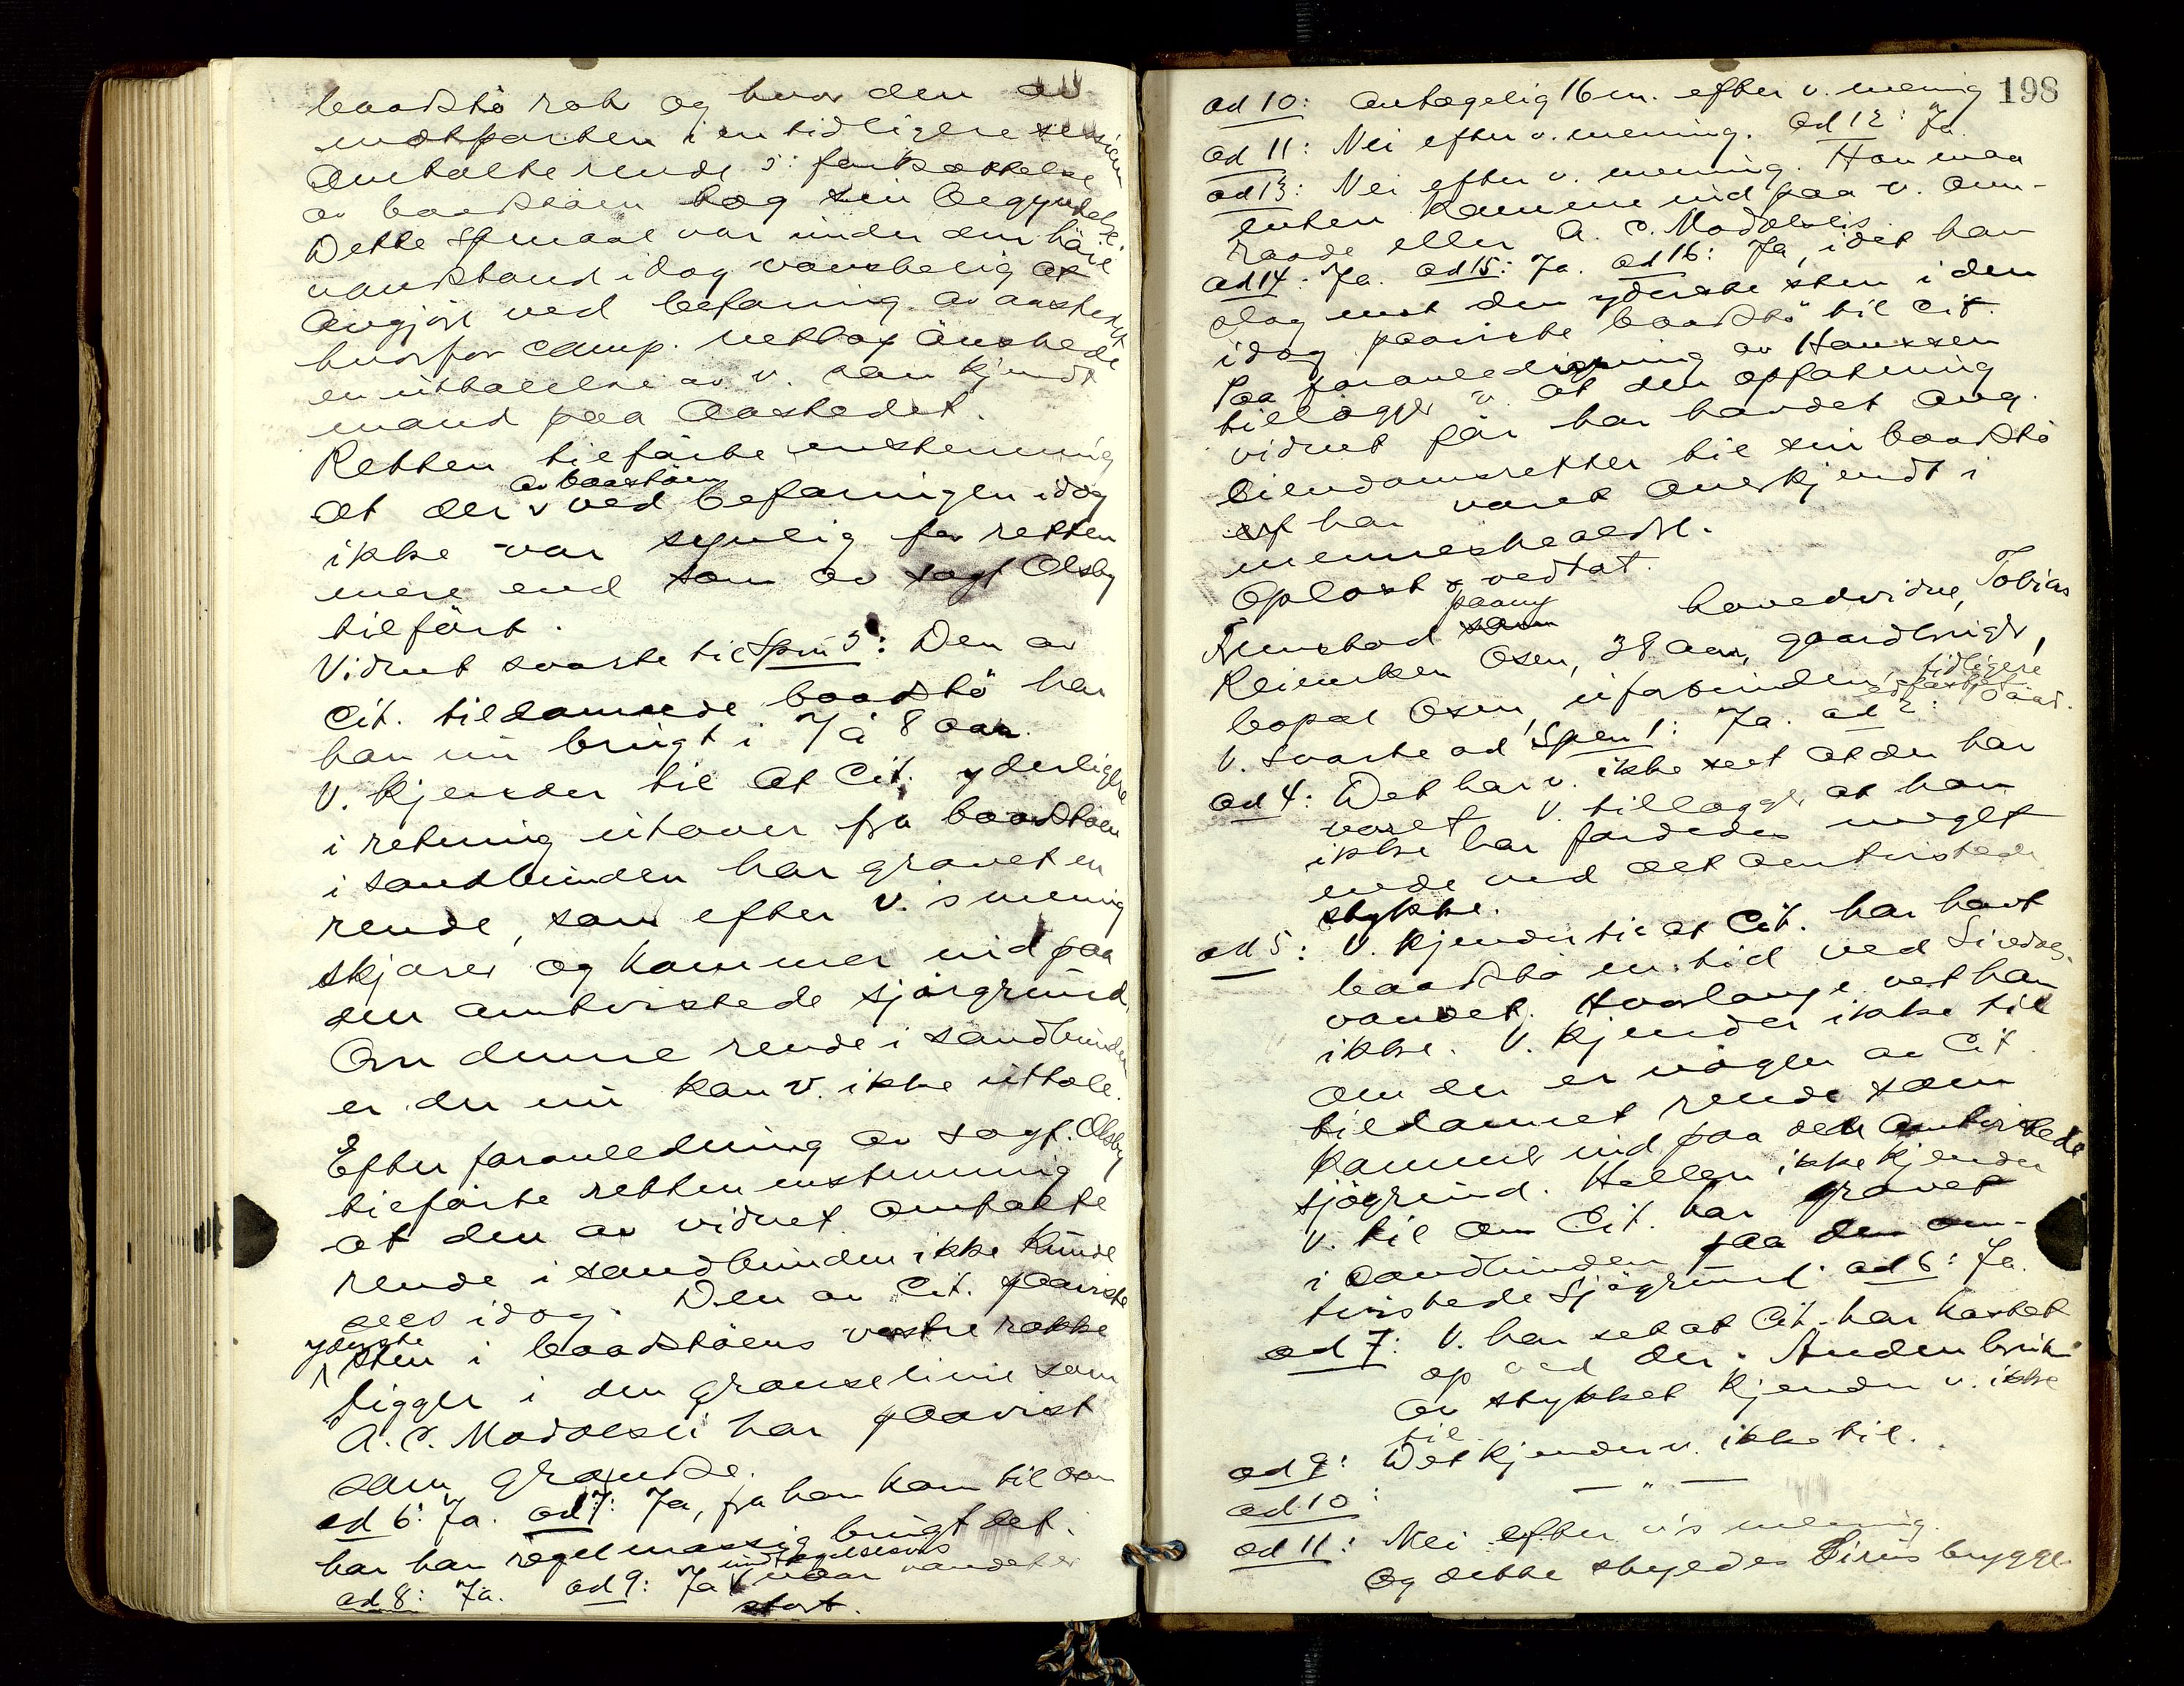 baadstö rak og hvor den av
motparten i en tidligere session
omtalte rende ɔ: fortsættelse
av baadstöen tog sin begyndelse.
Dette spmaal var under den höie
vandstand idag vanskelig at
avgjöre ved befaring av aastedet
hvorfor comp. netop önskede
en uttalelse av v. som kjendt
mand paa aastedet.
Retten tilförte enstemmig
av baastöen
at der v ved befaringen idag
ikke var synlig for retten
mere end som av sagf Olsby
tilfört.
Vidnet svarte til Spm 5: Den av
Cit. tildannede baadstö har
han nu brugt i 7 à 8 aar.
V. kjender til at Cit. yderligere
i retning utover fra baadstöen
i sandbunden har gravet en
rende, som efter v.'s mening
skjærer og kommer ind paa
den omtvistede sjögrund.
Om denne rende i sandbunden
er der nu kan v. ikke uttale.
Efter foranledning av sagf. Olsby
tilförte retten enstemmig
at den av vidnet omtalte
rende i sandbunden ikke kunde
sees idag. Den av Cit. paaviste
yderste
sten i baadstöens vestre række
ligger i den grænselinie som
A. C. Modalsli har paavist
som grænse.
ad 6: Ja. ad 7: Ja, fra han kom til aars
har han regelmæssig brugt det.
undtagelsesvis
ad 8: Ja. ad 9: Ja v naar vandet er
stort.
198
ad 10: Antagelig 16 m. efter v. mening
ad 11: Nei efter v. mening. ad 12: Ja.
ad 13: Nei efter v. mening. Han maa
enten komme ind paa v. om-
raade eller A. C. Modalslis.
ad 14: Ja. ad 15: Ja. ad 16: Ja, idet han
slog mot den yderste sten i den
idag paaviste baadstö til Cit.
Paa foranledigning av Hanssen
tillægger v. at den opfatning
vidnet för har havdet ang.
eiendomsretten til sin baadstö
har været anerkjendt i
menneskealdre.
Oplæst & vedtat.
paany
Fremstod som hovedvidne, Tobias
Reiersken Osen, 38 aar, gaardbruger,
bopæl Osen, uforbunden, tidligere
V. svarte ad Spm 1: Ja. ad 2:
ad 4: Det har v. ikke seet at der har
været. V. tillægger at han
ikke har færdedes meget
nede ved det omtvistede
stykke.
ad 5: V. kjender til at Cit. har havt
baadstö en tid ved
vandet. Hvorlænge vet han
ikke. V. kjender ikke til
om der er nogen av Cit.
tildannet rende som
kommer ind paa den omtvistede
sjögrund. Heller ikke kjender
v. til om Cit. har gravet
i sandbunden paa den om-
tvistede sjögrund. ad 6: Ja.
ad 7: V. har set at Cit. har kastet
op ved der. Anden bruk
av stykket kjender v. ikke
til.
ad 9: Det kjender v. ikke til.
ad 10: — " —
ad 11: Nei efter v's mening.
Og dette skyldes Sirus brygge